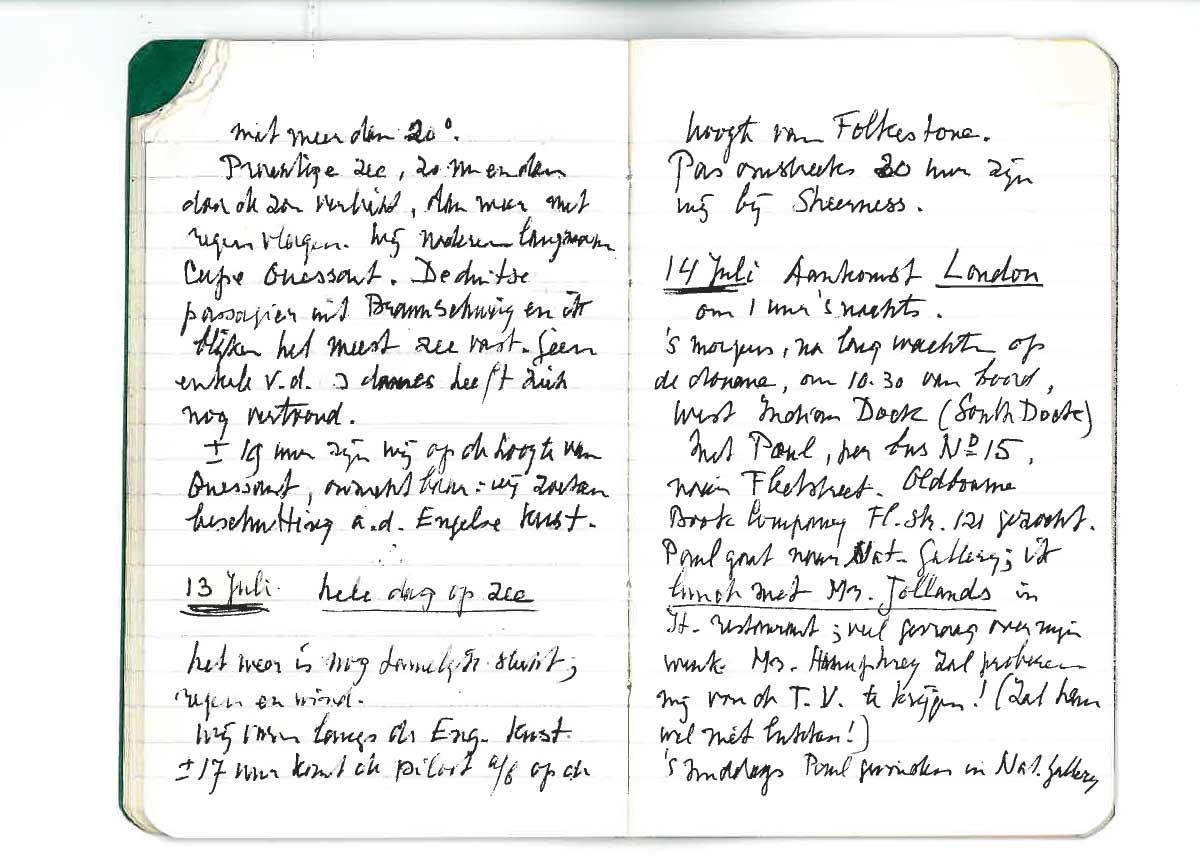 niet meer dan 20°.
Prachtige zee, zo nu en dan
dan de zon verhuld, dan weer met
regenvlagen. Wij naderen langzaam
Cape Ouessant. De duitse
passagier uit Braunschweig en ik
blijken het meest zeevast. Geen
enkele v.d. 3 dames heeft zich
nog vertoond.
± 19 uur zijn wij op de hoogte van
Ouessant, onzichtbaar: wij zoeken
beschutting a.d. Engelse kust.
13 Juli hele dag op zee
het weer is nog tamelijk slecht;
regen en wind.
Wij varen langs de Eng. kust.
± 17 uur komt de piloot a/b op de
hoogte van Folkestone.
Pas omstreeks 20 uur zijn
wij bij Sheerness.
14 Juli Aankomst London
om 1 uur 's nachts.
's morgens, na lang wachten op
de douane, om 10.30 van boord,
West Indian Dock (South Dock)
Met Paul, per bus No 15,
naar Fleetstreet. Oldbourne
Book Company Fl. Str. 121 gezocht.
Paul gaat naar Nat. Gallery; ik
lunch met Mr. Jollands in
It. restaurant; veel gevraag over mijn
werk. Mr. Humphrey zal proberen
mij van de T.V. te krijgen! (Zal hem
wel niet lukken!)
's middags Paul gevonden in Nat. Gallery